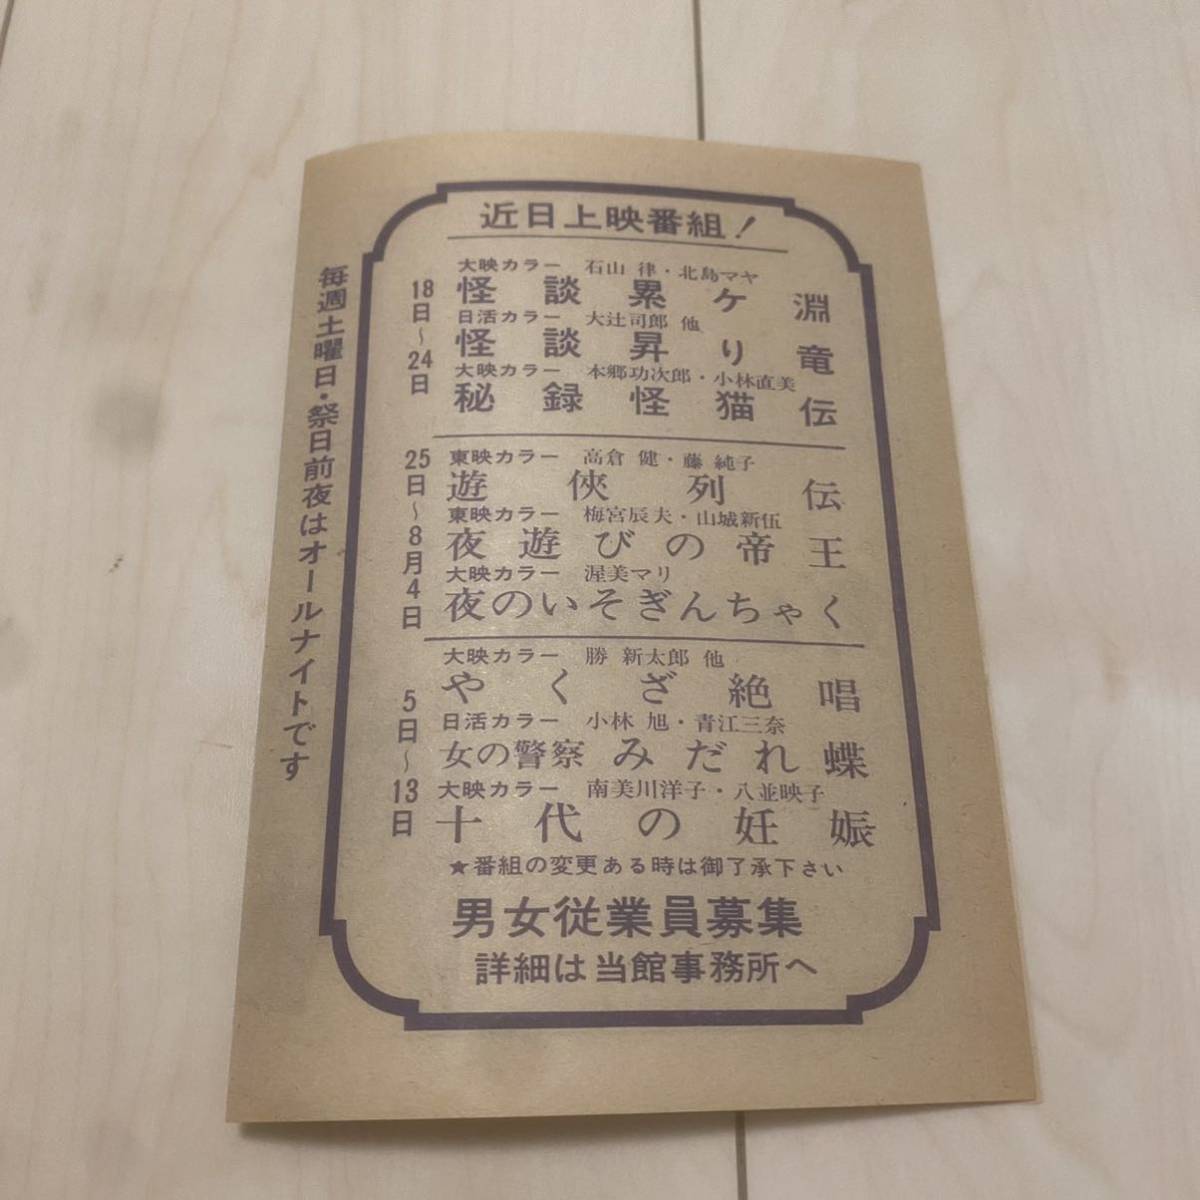 近日上映番組！
18日～24日
大映カラー 石山 律・北島マヤ
怪談累ケ淵
日活カラー 大辻司郎 他
怪談昇り竜
大映カラー 本郷功次郎・小林直美
秘録怪猫伝
25日～8月4日
東映カラー 高倉 健・藤 純子
遊俠列伝
東映カラー 梅宮辰夫・山城新伍
夜遊びの帝王
大映カラー 渥美マリ
夜のいそぎんちゃく
5日～13日
大映カラー 勝 新太郎 他
やくざ絶唱
日活カラー 小林 旭・青江三奈
女の警察 みだれ蝶
大映カラー 南美川洋子・八並映子
十代の妊娠
★番組の変更ある時は御了承下さい
男女従業員募集
詳細は当館事務所へ
毎週土曜日・祭日前夜はオールナイトです